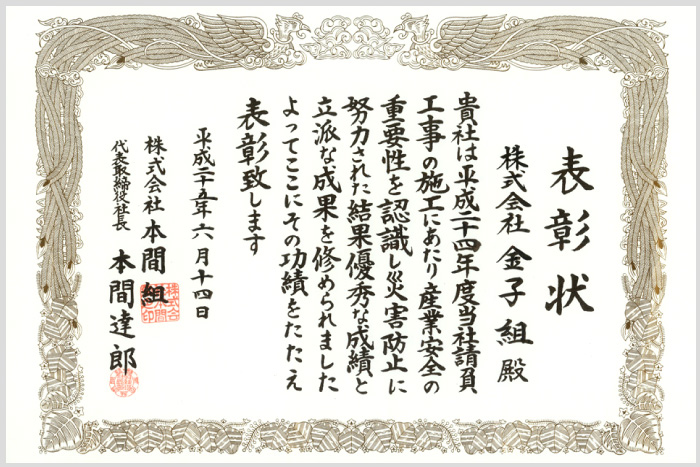 表彰状
株式会社 金子組 殿
貴社は平成二十四年度当社請負
工事の施工にあたり産業安全の
重要性を認識し災害防止に
努力された結果優秀な成績と
立派な成果を修められました
よってここにその功績をたたえ
表彰致します
平成二十五年六月十四日
株式会社 本間組
代表取締役社長 本間達郎